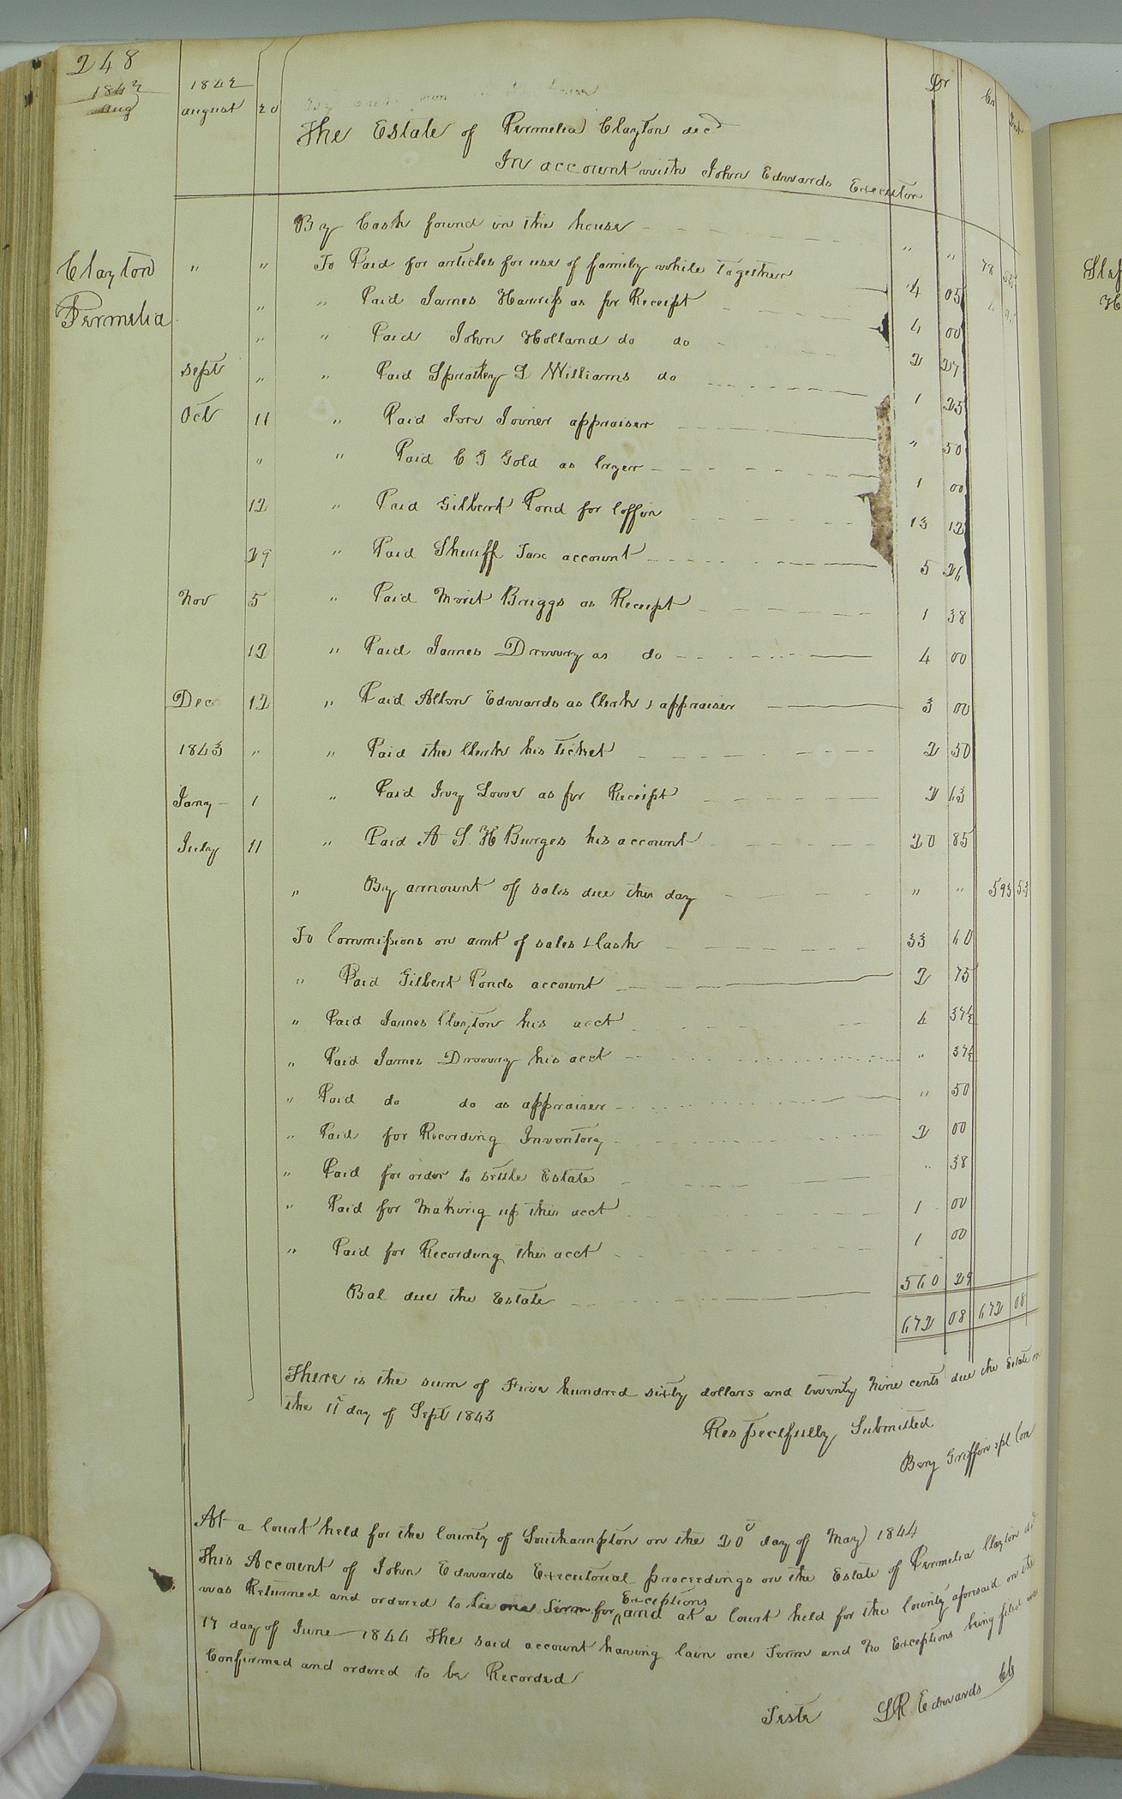 248
1842 1842 Dr Cr
Aug august 20
The Estate of Permelia Clayton decd
In account with John Edwards Executor
By Cash found in the house " " 78 55
Clayton " " To Paid for articles for use of family while together 4 05
Permelia " " Paid James Harriss as per Receipt 4 00
" " Paid John Holland do do 2 27
Sept " " Paid Spratley S Williams do 1 25
Oct 11 " Paid Joiner appraiser " 50
" " Paid C G Gold as 1 00
12 " Paid Gilbert Pond for Coffin 13 12
29 " Paid Sheriff Tax account 5 26
Nov 5 " Paid Briggs as Receipt 1 38
12 " Paid James Drewry as do 4 00
Dec 12 " Paid Alton Edwards as Clerk & appraiser 3 00
1843 " " Paid the Clerk his ticket 2 50
Jany 1 " Paid as per Receipt 2 63
July 11 " Paid A S H Burges his account 20 85
" By amount off sales due this day " " 593 53
To Commissions on amt of sales & Cash 33 60
" Paid Gilbert Ponds account 2 75
" Paid James Clayton his acct 4 37½
" Paid James Drewry his acct " 37½
" Paid do do as appraiser " 50
" Paid for Recording Inventory 2 00
" Paid for order to settle Estate " 38
" Paid for Making up this acct 1 00
" Paid for Recording this acct 1 00
Bal due the Estate 560 29
672 08 672 08
There is the sum of Five hundred sixty dollars and twenty Nine cents due the Estate on
the 11 day of Sept 1843
Respectfully Submitted
Benj Griffin spl Com
At a Court held for the County of Southampton on the 20 day of May 1844
This Account of John Edwards Executorial proceedings on the Estate of Permelia Clayton decd
was Returned and ordered to lie one Term for Exceptions and at a Court held for the County aforesaid on the
17 day of June 1844 The said account having lain one Term and No Exceptions being filed was
Confirmed and ordered to be Recorded
Teste LR Edwards Clk